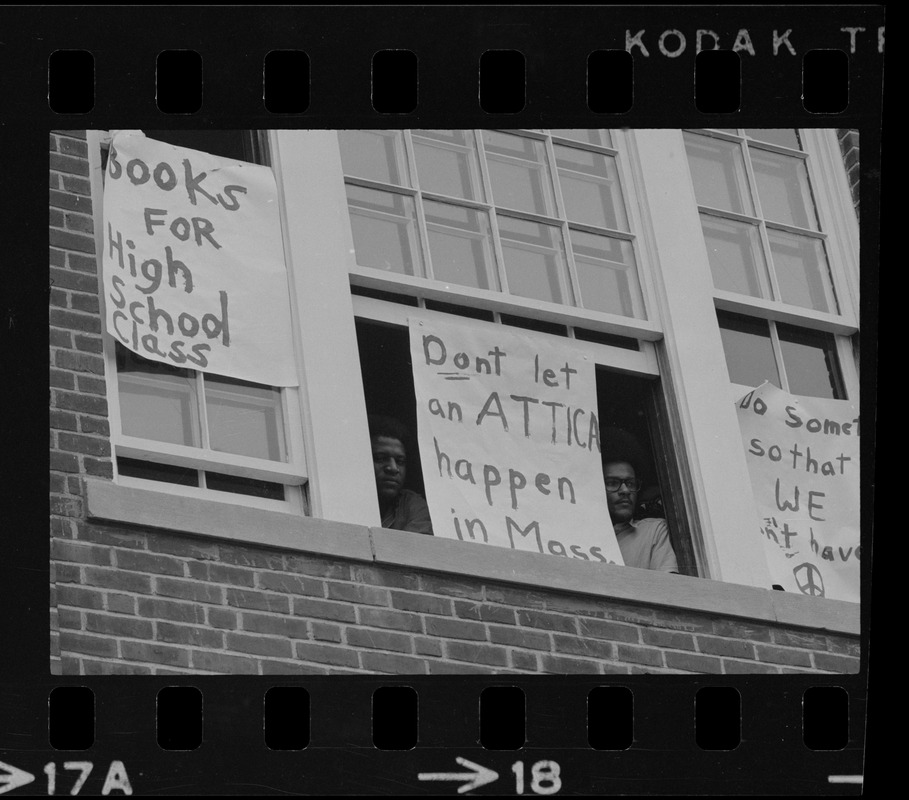 KODAK
BOOKS
FOR
High
School
Class
Dont let
an ATTICA
happen
in Mass.
Do
so that
WE
have
17A
18